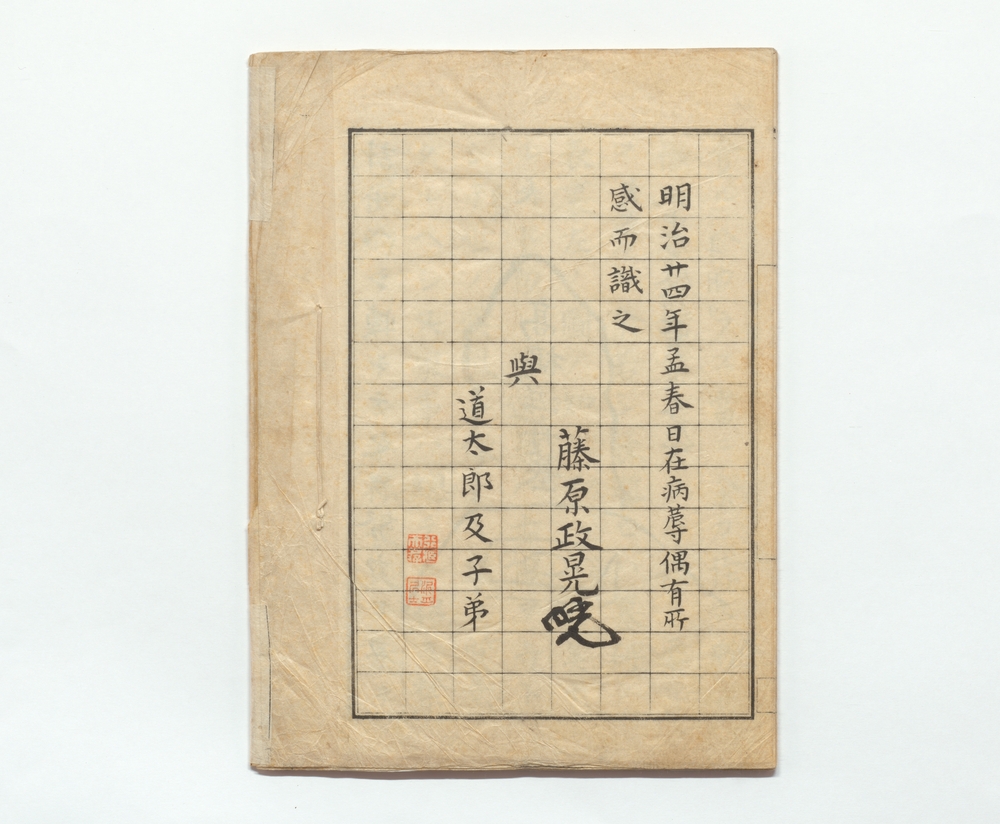 明治廿四年孟春日在病蓐偶有所
感而識之
藤原政晃
與
道太郎及子弟